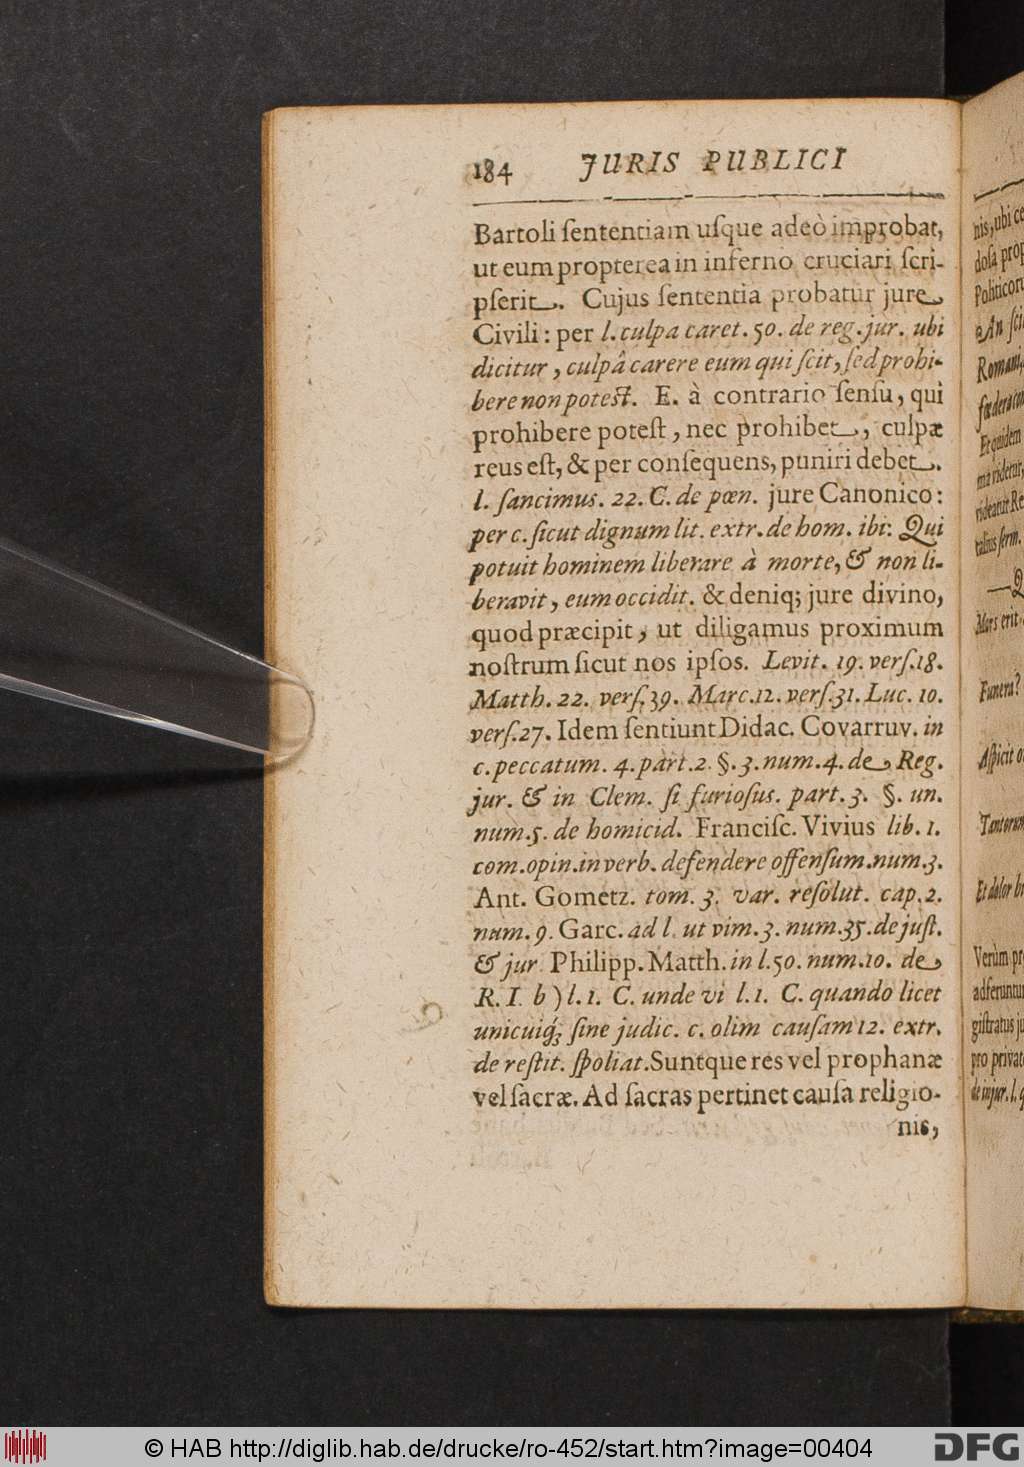 184 JURIS PUBLICI
Bartoli ſententiam uſque adeò improbat,
ut eum propterea in inferno cruciari ſcri-
pſerit. Cujus ſententia probatur jure
Civili: per l. culpa caret. 50. de reg. jur. ubi
dicitur, culpâ carere eum qui ſcit, ſed prohi-
bere non poteſt. E. à contrario ſenſu, qui
prohibere poteſt, nec prohibet, culpæ
reus eſt, & per conſequens, puniri debet.
l. ſancimus. 22. C. de pœn. jure Canonico:
per c. ſicut dignum lit. extr. de hom. ibi: Qui
potuit hominem liberare à morte, & non li-
beravit, eum occidit. & deniq; jure divino,
quod præcipit, ut diligamus proximum
noſtrum ſicut nos ipſos. Levit. 19. verſ. 18.
Matth. 22. verſ. 39. Marc. 12. verſ. 31. Luc. 10.
verſ. 27. Idem ſentiunt Didac. Covarruv. in
c. peccatum. 4. part. 2. §. 3. num. 4. de Reg.
jur. & in Clem. ſi furioſus. part. 3. §. un.
num. 5. de homicid. Franciſc. Vivius lib. 1.
com. opin. in verb. defendere offenſum. num. 3.
Ant. Gometz. tom. 3. var. reſolut. cap. 2.
num. 9. Garc. ad l. ut vim. 3. num. 35. de juſt.
& jur. Philipp. Matth. in l. 50. num. 10. de
R. I. b) l. 1. C. unde vi l. 1. C. quando licet
unicuiq; ſine judic. c. olim cauſam 12. extr.
de reſtit. ſpoliat. Suntque res vel prophanæ
vel ſacræ. Ad ſacras pertinet cauſa religio-
nis,
nis, ubi
doſa
Politicor
An
Romani
Et quidem
ma videtur,
videatur Re
ſerm.
Mars erit
Funera?
Aſpicit
Tantorum
Et dolor
Verùm
adferuntur
giſtratus
pro privat
de injur. l.
© HAB http://diglib.hab.de/drucke/ro-452/start.htm?image=00404
DFG